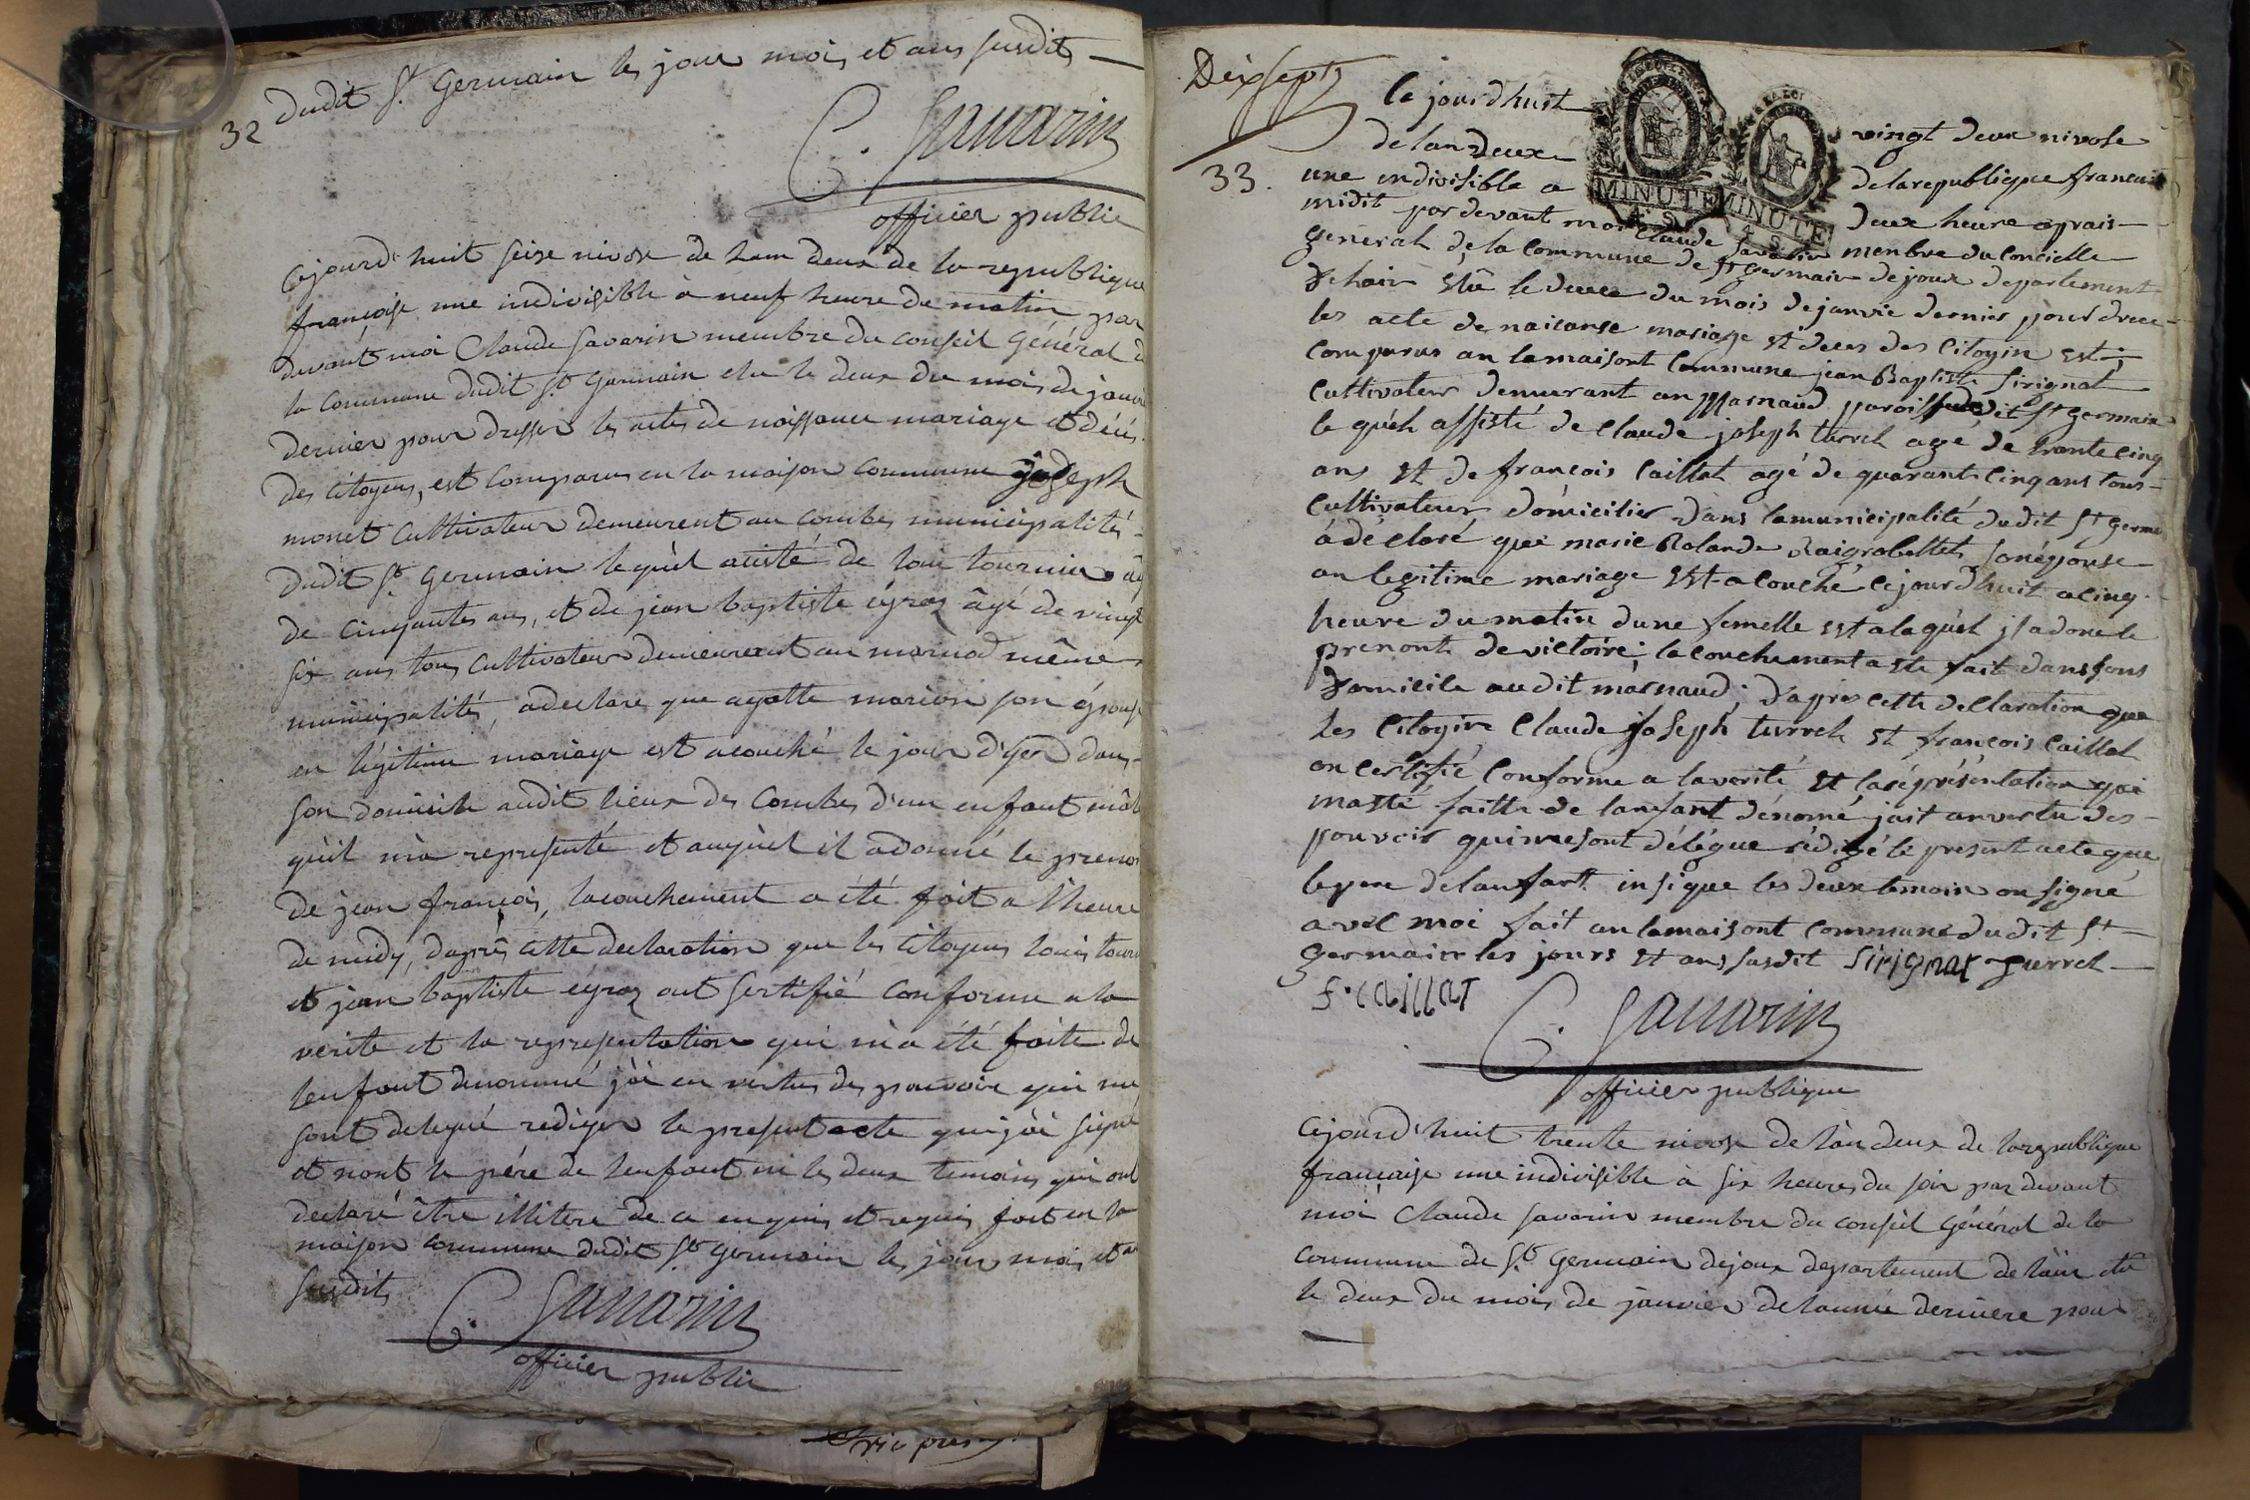 32
dudit St. Germain les jour mois et ans susdits
C. Savarin
officier public
Cejourd'huit seize nivose de l'an deux de la republique
françoise une indivisible à neuf heure du matin par
devant moi Claude Savarin membre du conseil Général de
la Commune dudit St. Germain elu le deux du mois de janvie
dernier pour dresser les actes de naissance mariage et décés
des citoyens, est comparu en la maison commune joseph
monet cultivateur demeurent au combes municipalités
dudit St. Germain lequèl assisté de loui tournier âgé
de cinquantes ans, et de jean baptiste égraz âgé de vingt
six ans tous cultivateur demeurent au marnod même
municipalités, a declare que agatte marion son épouse
en légitime mariage est acouché le jour d'yer dans
son domicile audit lieux des Combes d'un enfant mâle
qu'il m'a representé et auquèl il a donné le prenom
de jean françois, lacouchement a été fait a l'heure
de midy, d'aprês cette declaration que les citoyens louis tourn
et jean baptiste égraz ont sertifié conforme a la
verite et la representation qui m'a été faite de
lenfant denommé j'ài en vertus des pouvoirs qui me
sont delegué rediger le present acte que j'ài signé
et nont le père de lenfant ni les deux temoins qui ont
declaré être illitere de ce enquis et requis fait en la
maison commune dudit St. Germain les jour mois et an
susdits
C. Savarin
officier public
Dixsept
33.
Ce jourdhuit vingt deux nivose
de lan deux de la republique francais
une indivisible a deux heure aprais
midit par devant moi Claude Savarin menbre du concielle
general de la commune de St germain de joux departement
Dehain elû le deuce du mois de janvié dernier pour drece
les acte de naicanse mariage et deces des Citoyin est
Comparus an la maisont Commune jean Baptiste Sirignat
cultivateur demurant an Marnaud paroisse dudit St germain
le quéh assisté de Claude joseph turrel agé de trante cinq
ans et de francois Caillat agé de quarante cinq ans tous
Cultivateur dômicilier dans la municipalité dudit St germ
à déclaré que marie Rolande Raigrobellet son épouse
an legitime mariage est acouché ce jourdhuit a cinq
heure du matin dune femelle est a laquél jl a done le
prenont de victoire; la couchement a ete fait dans sons
domicile audit marnaud; d'apres cette declaration que
les Citoyin Claude joseph turrel et francois Caillat
on certifié Conforme a la verité et la réprésentation qui
maété faitte de lanfant dénomé jait anvertu des
pouvoir qui me sont délégue rédigé le present acte que
le pere de lanfant insi que les deux temoin on signé
avec moi fait an la maisont commune du dit St
germain les jours et ans susdit Sirignat turrel
f. caillat
C. Savarin
officier publique
Cejourd'huit trente nivose de l'àn deux de la republique
française une indivisible à six heures du soir par devant
moi Claude Savarin membre du conseil Général de la
commune de St. Germain dejoux departement de l'ain elu
le deux du mois de janvier de lannée derniere pour
MINUTE
4. S.
MINUTE
4. S.